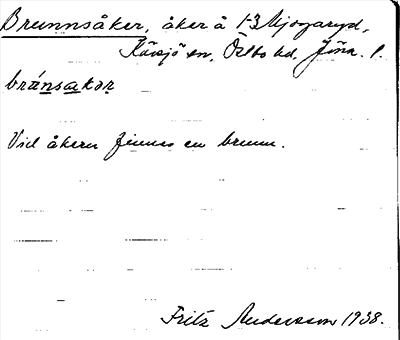 Brunnsåker, åker å 1-3 Mjogaryd,
Kävsjö sn, Östbo hd, Jönk. l.
bránsakər
Vid åkern finnes en brunn.
Fritz Andersson 1938.